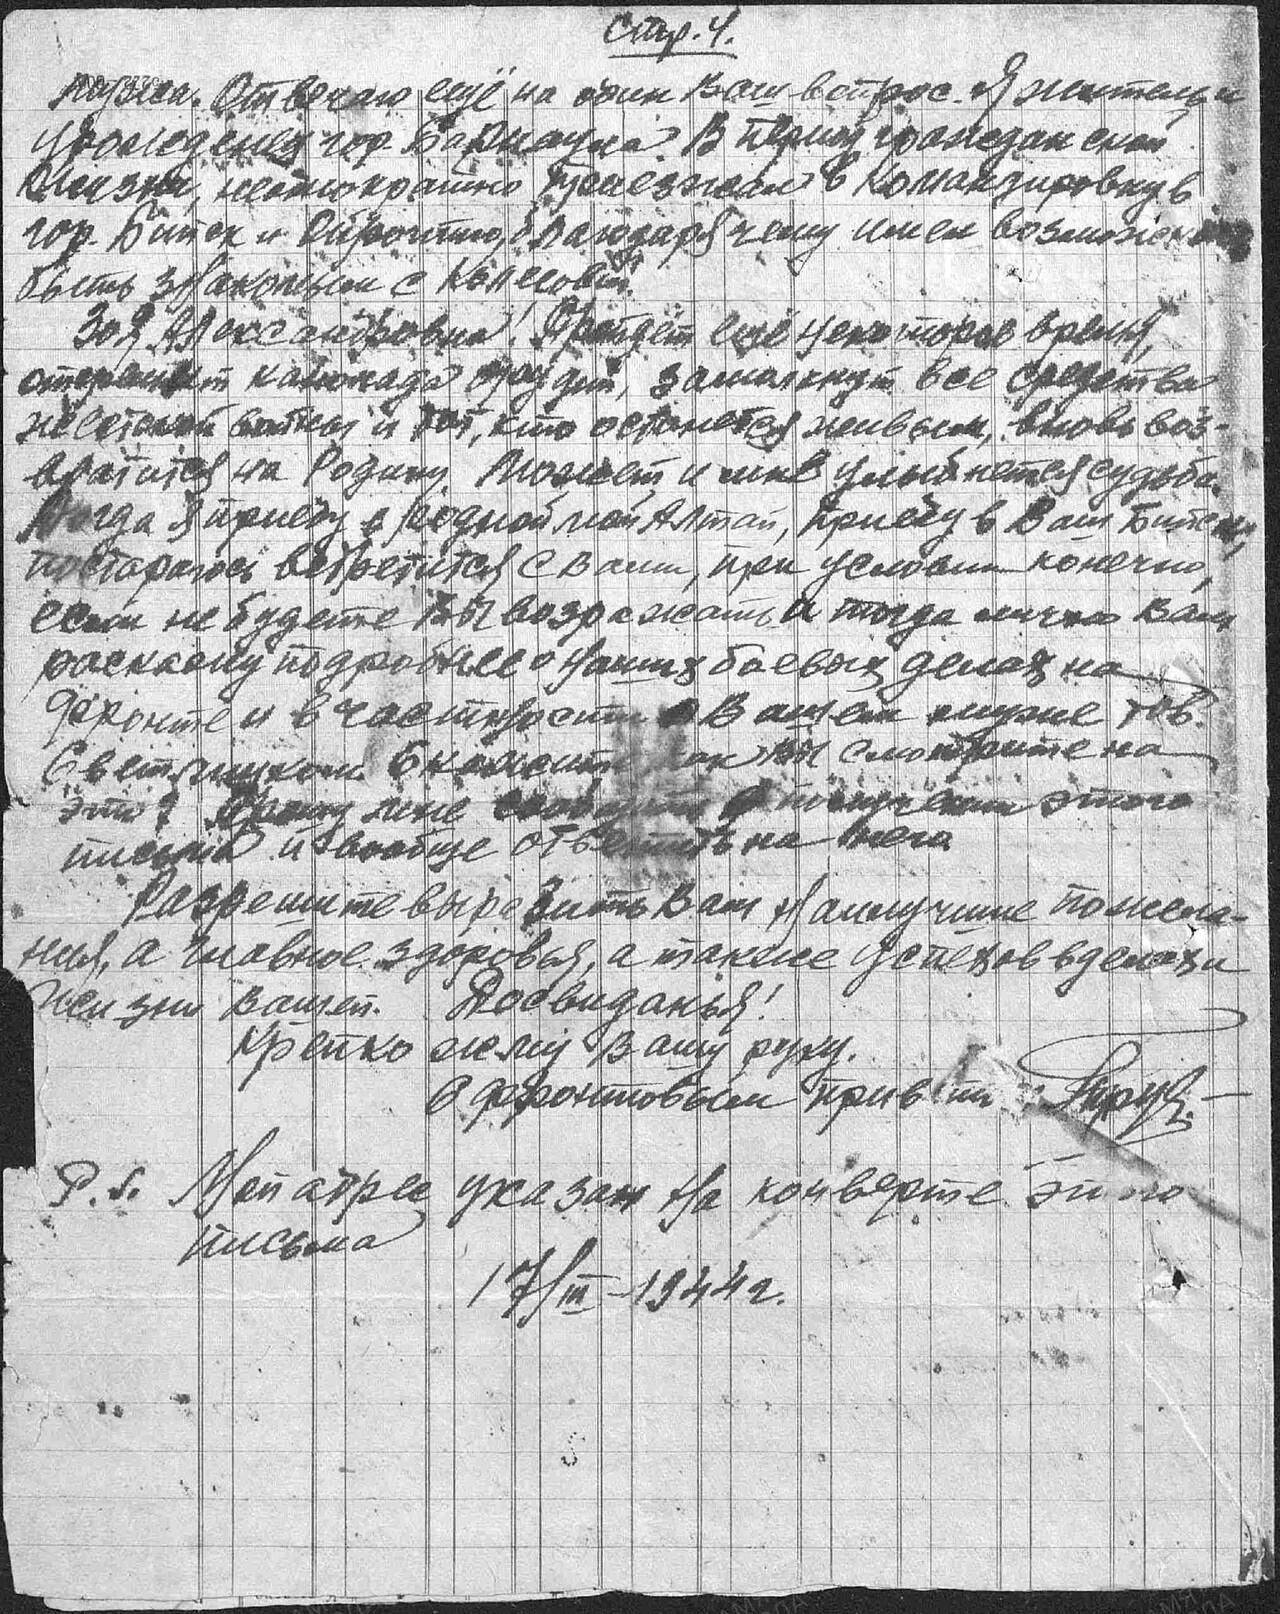 Стр. 4.
мужа. Отвечаю ещё на один Ваш вопрос. Я житель и
урожденец гор. Барнаула. В период гражданской
жизни, неоднократно приезжал в командировку в
гор. Бийск и благодаря чему имел
быть знакомым с
Зоя Александровна! Пройдёт ещё некоторое время,
канонада орудий, замолкнут все средства
жестокой войны и тот, кто останется живым, вновь воз-
вратится на Родину. Может и мне улыбнется судьба.
Когда я приеду в родной мой Алтай, приеду в Ваш Бийск,
постараюсь встретится с Вами, при условии конечно,
если не будете Вы возражать и тогда лично Вам
раскажу подробнее о наших боевых делах на
фронте и в частности о Вашем муже тов.
Светличном. Скажите как Вы смотрите на
это? Прошу мне сообщить о получении этого
письма и вообще ответить на него
Разрешите выразить Вам наилучшие пожела-
ния, а главное здоровья, а также успехов в делах и
жизни Вашей. Досвиданья!
Крепко жму Вашу руку.
С фронтовым приветом
P.S. Мой адрес указан на конверте этого
письма
17/III-1944 г.